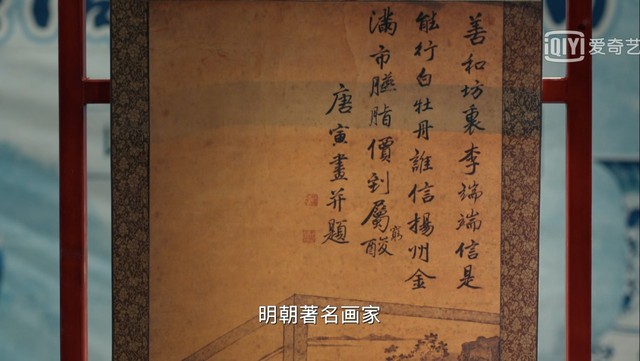 iQIYI 爱奇艺
善和坊裏李端端信是
能行白牡丹誰信揚州金
滿市臙脂價到屬窮酸
唐寅畫并題
明朝著名画家